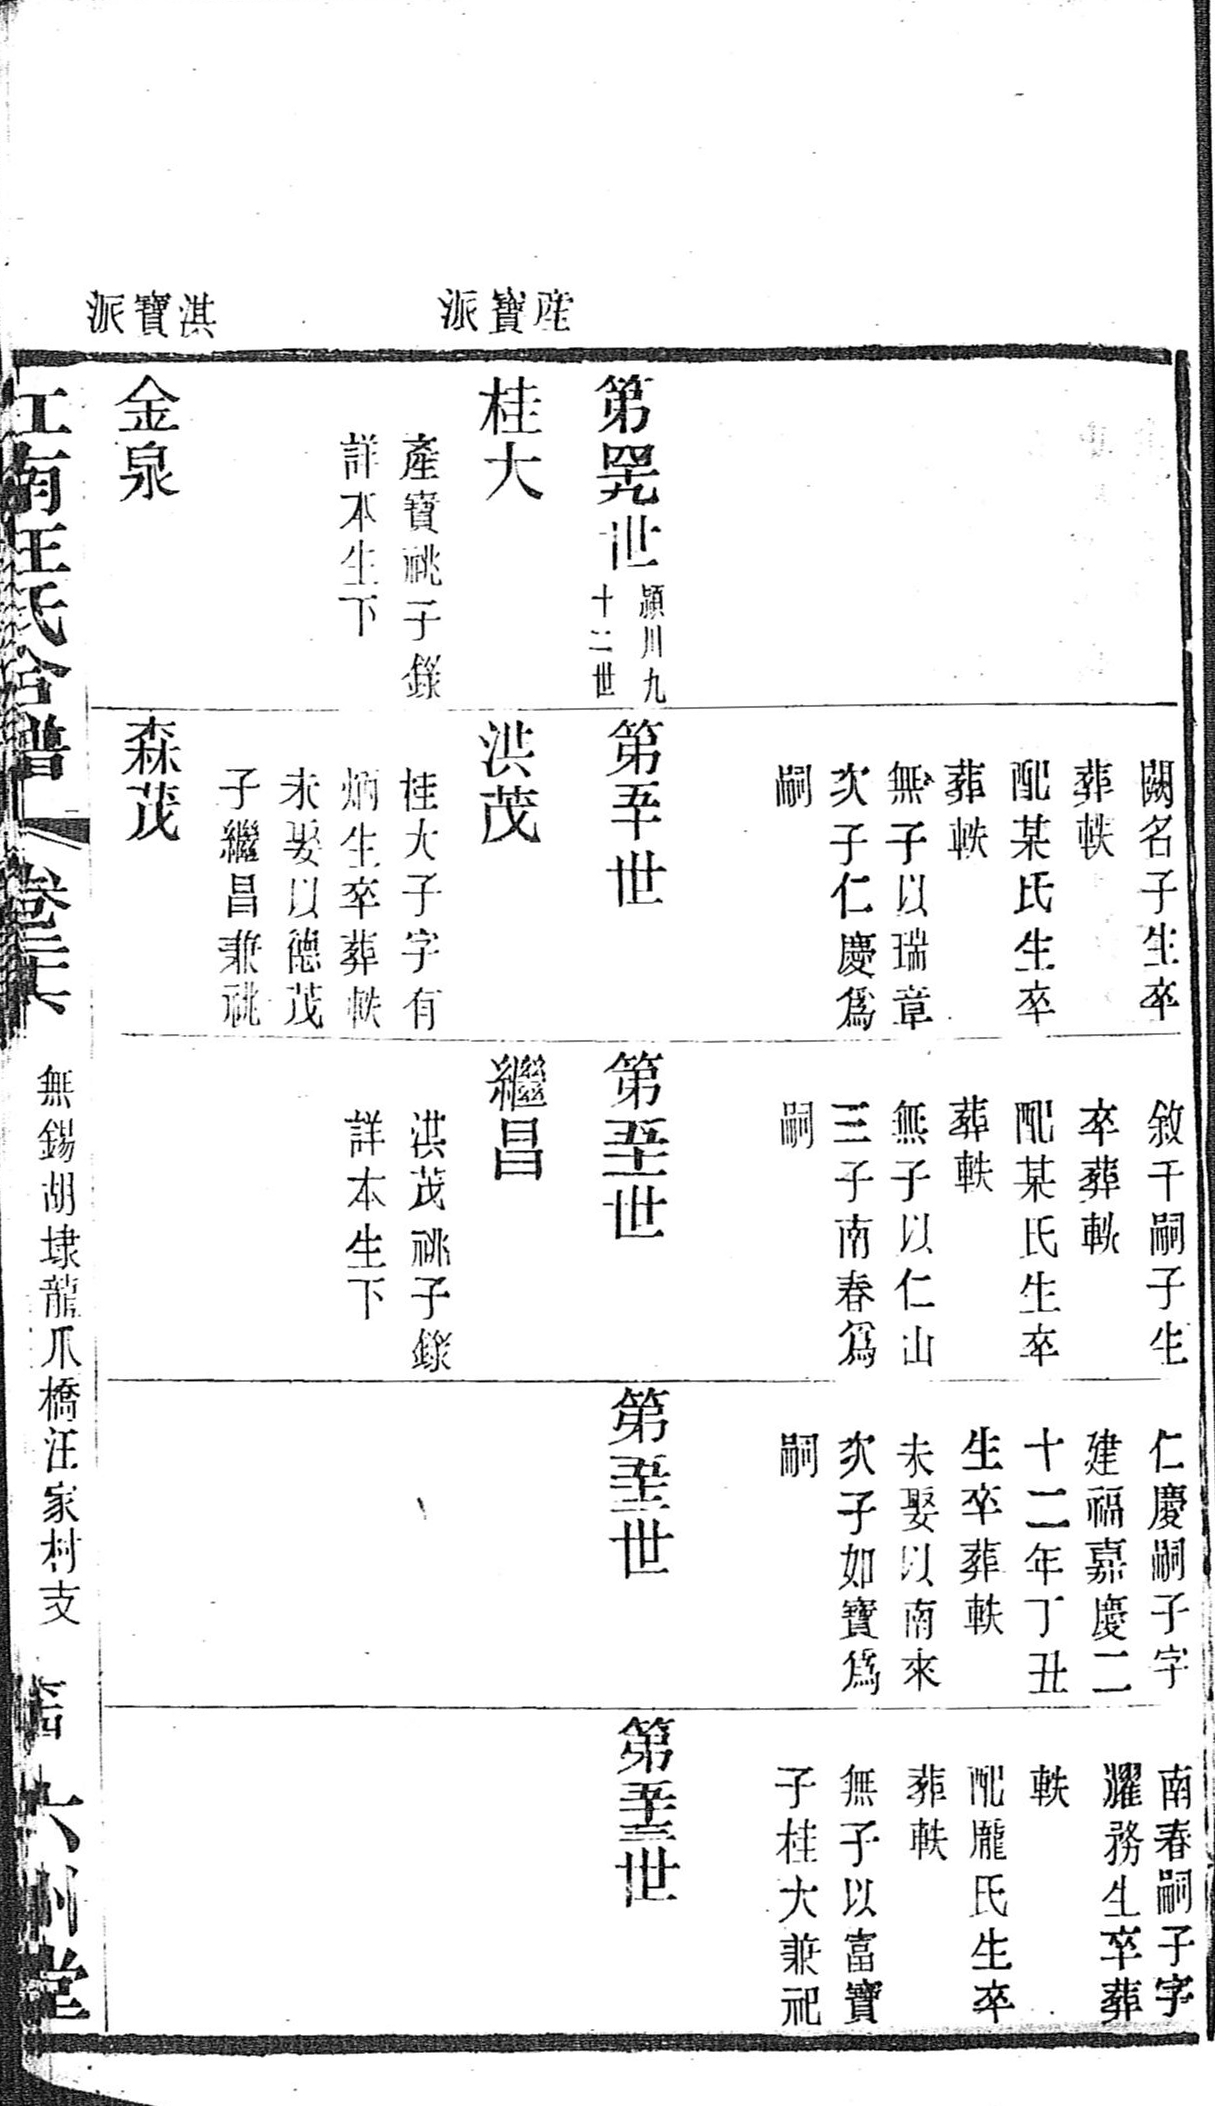 產寶派
淇寶派
闕名子生卒
葬軼
配某氏生卒
葬軼
無子以瑞章
次子仁慶爲
嗣
敘干嗣子生
卒葬軼
配某氏生卒
葬軼
無子以仁山
三子南春爲
嗣
仁慶嗣子字
建福嘉慶二
十二年丁丑
生卒葬軼
未娶以南來
次子如寶爲
嗣
南春嗣子字
耀務生卒葬
軼
配龐氏生卒
葬軼
無子以富寶
子桂大兼祀
第罕九世
潁川九
十二世
桂大
產寶祧子錄
詳本生下
金泉
第五十世
洪茂
桂大子字有
炳生卒葬軼
未娶以德茂
子繼昌兼祧
森茂
第五十一世
繼昌
洪茂祧子錄
詳本生下
第五十二世
第五十三世
江南汪氏合譜
卷二十六
無錫胡埭龍爪橋汪家村支
六州堂